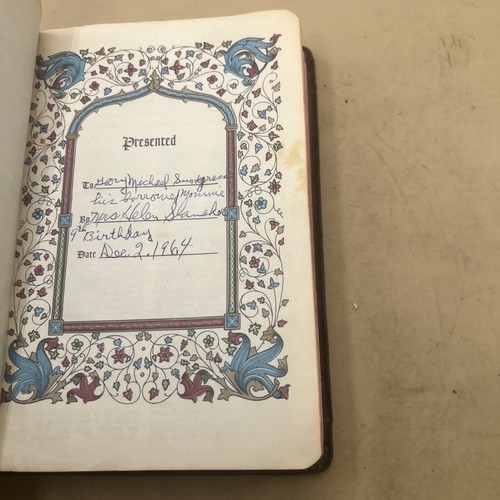 Presented
To Gary Michael Snodgrass
his borrowed Mommie
By Mrs. Helen
9th Birthday
Date Dec. 2, 1964